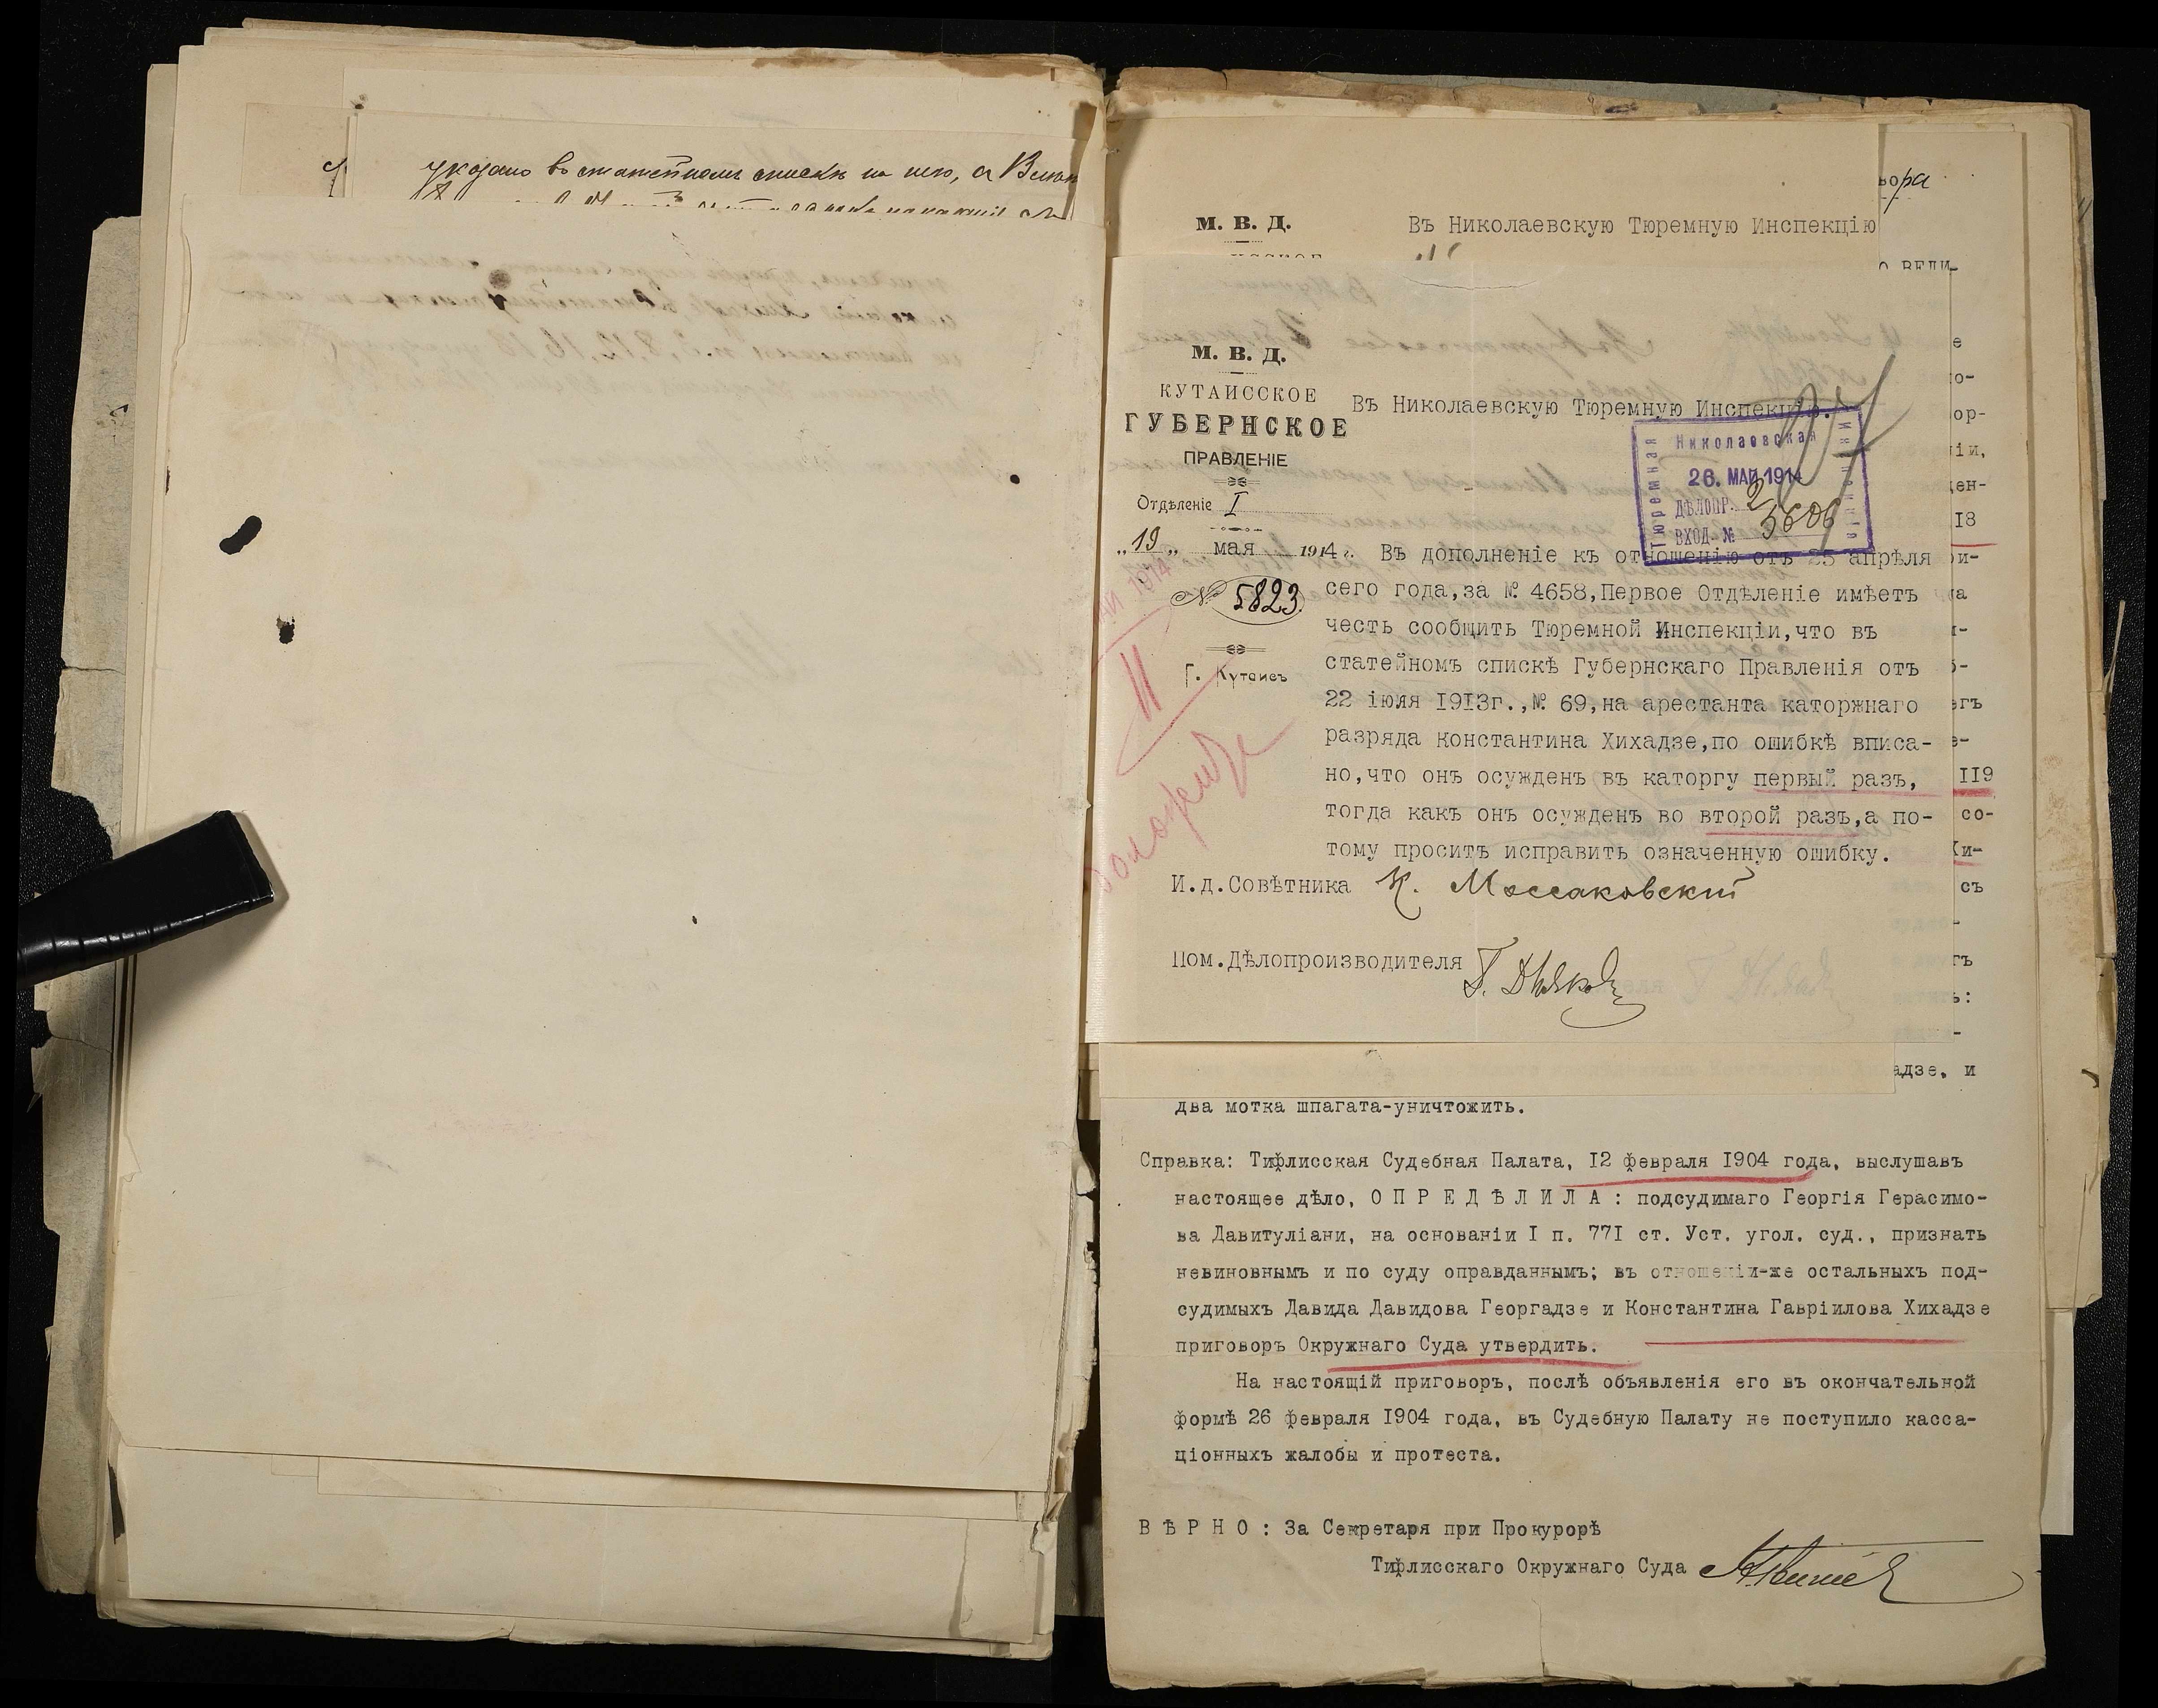 указано въ статейномъ спискѣ на него, а
вора
М. В. Д.
Въ Николаевскую Тюремную Инспекцію
М. В. Д.
КУТАИССКОЕ
ГУБЕРНСКОЕ
ПРАВЛЕНІЕ
Отдѣленіе I
„19„ мая 1914 г.
№ 5823.
Г. Кутаисъ
Въ Николаевскую Тюремную Инспекцію.
Николаевская
Тюремная
Инспекція
26. МАЙ 1914
ДѢЛОПР. 2
ВХОД. № 5606
Въ дополненіе къ отношенію отъ 25 апрѣля
сего года,за № 4658,Первое Отдѣленіе имѣетъ
честь сообщить Тюремной Инспекціи,что въ
статейномъ спискѣ Губернскаго Правленія отъ
22 іюля I9I3г.,№ 69,на арестанта каторжнаго
разряда Константина Хихадзе,по ошибкѣ вписа-
но,что онъ осужденъ въ каторгу первый разъ,
тогда какъ онъ осужденъ во второй разъ,а по-
тому проситъ исправить означенную ошибку.
И.д.Совѣтника К. Моссаковскій
Пом.Дѣлопроизводителя
II
I8
II9
со-
съ
адзе, и
два мотка шпагата-уничтожить.
Справка: Тифлисская Судебная Палата, I2 февраля I904 года, выслушавъ
настоящее дѣло, О П Р Е Д Ѣ Л И Л А : подсудимаго Георгія Герасимо-
ва Давитуліани, на основаніи I п. 77I ст. Уст. угол. суд., признать
невиновнымъ и по суду оправданнымъ; въ отношеніи-же остальныхъ под-
судимыхъ Давида Давидова Георгадзе и Константина Гавріилова Хихадзе
приговоръ Окружнаго Суда утвердить.
На настоящій приговоръ, послѣ объявленія его въ окончательной
формѣ 26 февраля I904 года, въ Судебную Палату не поступило касса-
ціонныхъ жалобы и протеста.
В Ѣ Р Н О : За Секретаря при Прокурорѣ
Тифлисскаго Окружнаго Суда